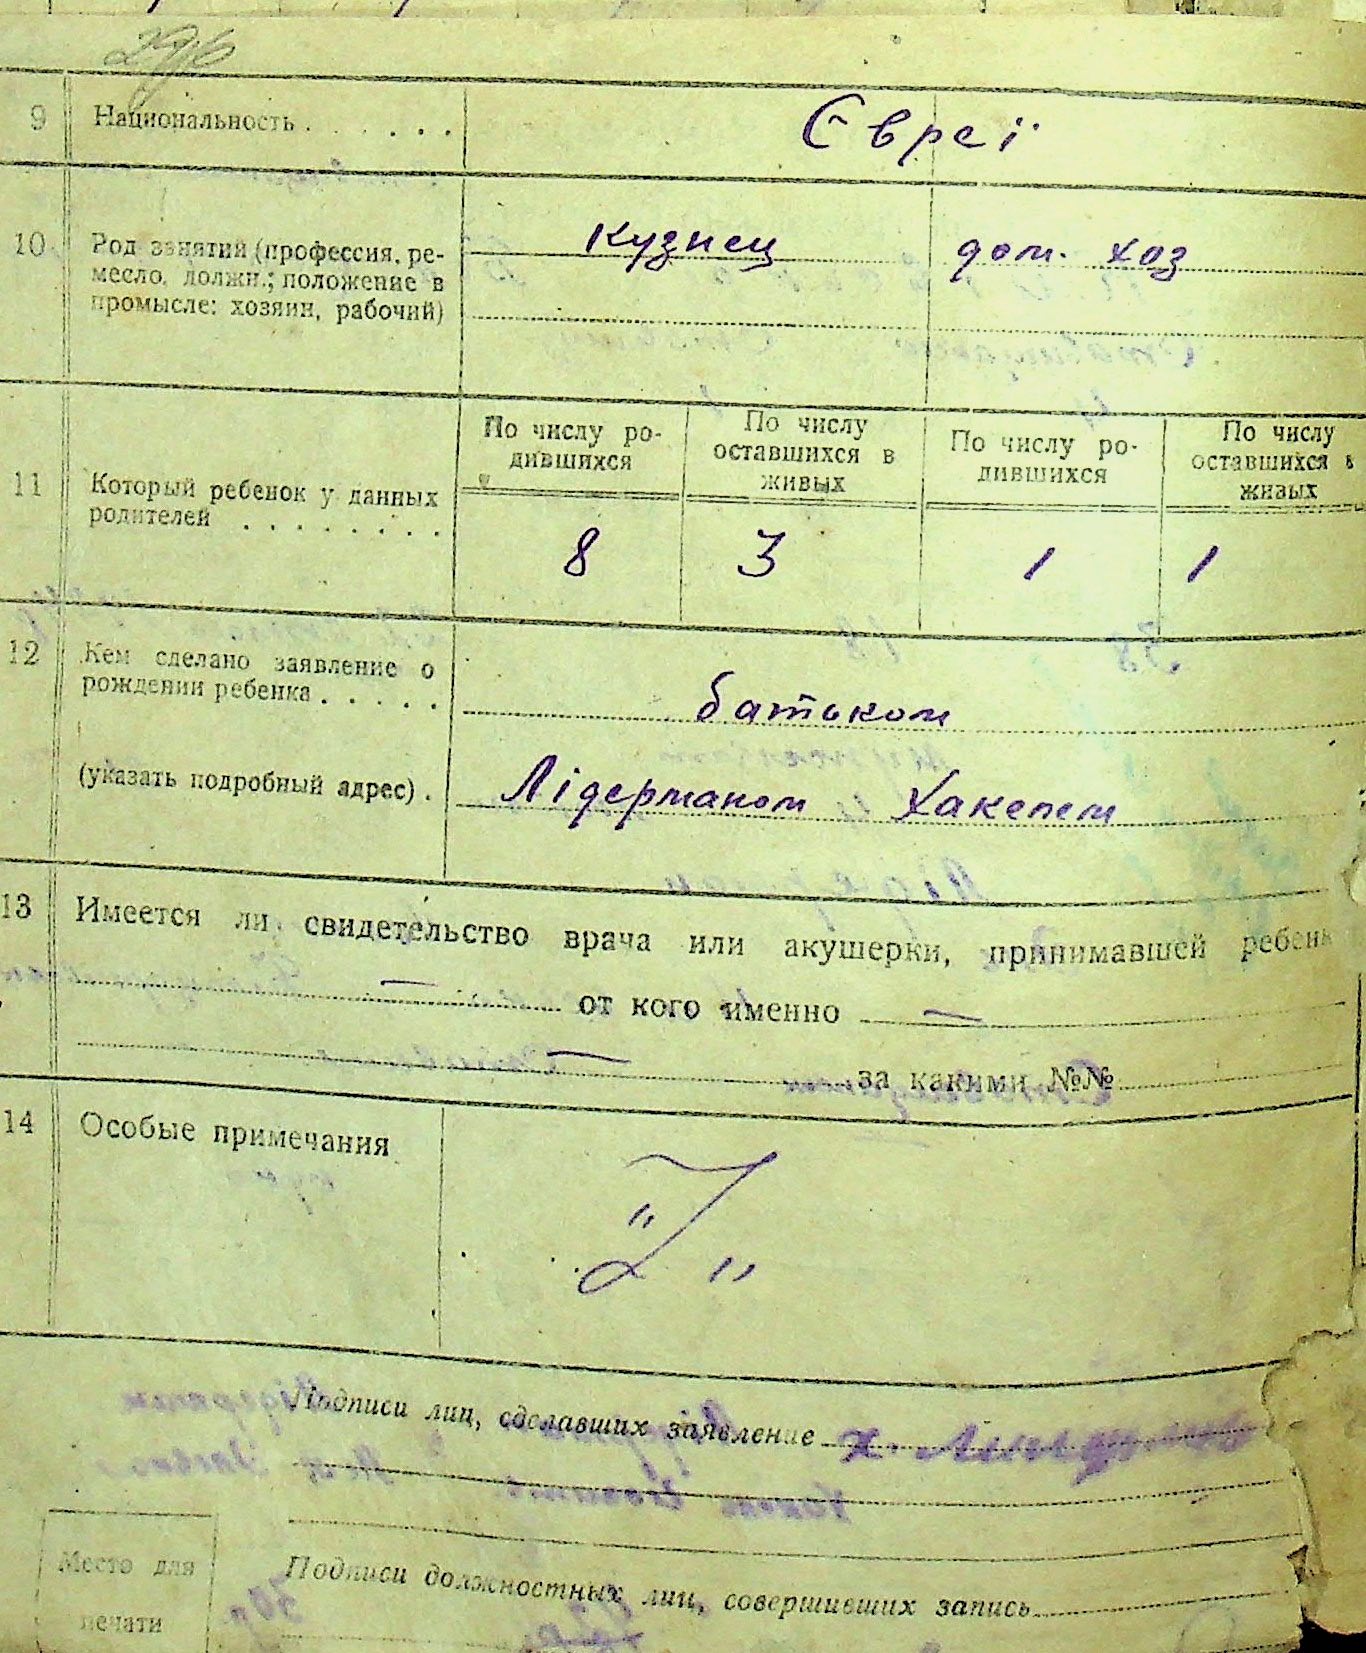 9 Национальность . . . . . . Євреї
10 Род занятий (профессия, ре-
месло, должн.; положение в
промысле: хозяин, рабочий)
кузнец дом. хоз
11 Который ребенок у данных
родителей . . . . . . . .
По числу ро-
дившихся
По числу
оставшихся в
живых
По числу ро-
дившихся
По числу
оставшихся в
живых
8 3 1 1
12 Кем сделано заявление о
рождении ребенка . . . . .
батьком
(указать подробный адрес) .
Лідерманом Хакелем
13 Имеется ли свидетельство врача или акушерки, принимавшей ребенк
— от кого именно —
— за какими №№
14 Особые примечания
" Z "
Подписи лиц, сделавших заявление
Место для
печати
Подписи должностных лиц, совершивших запись